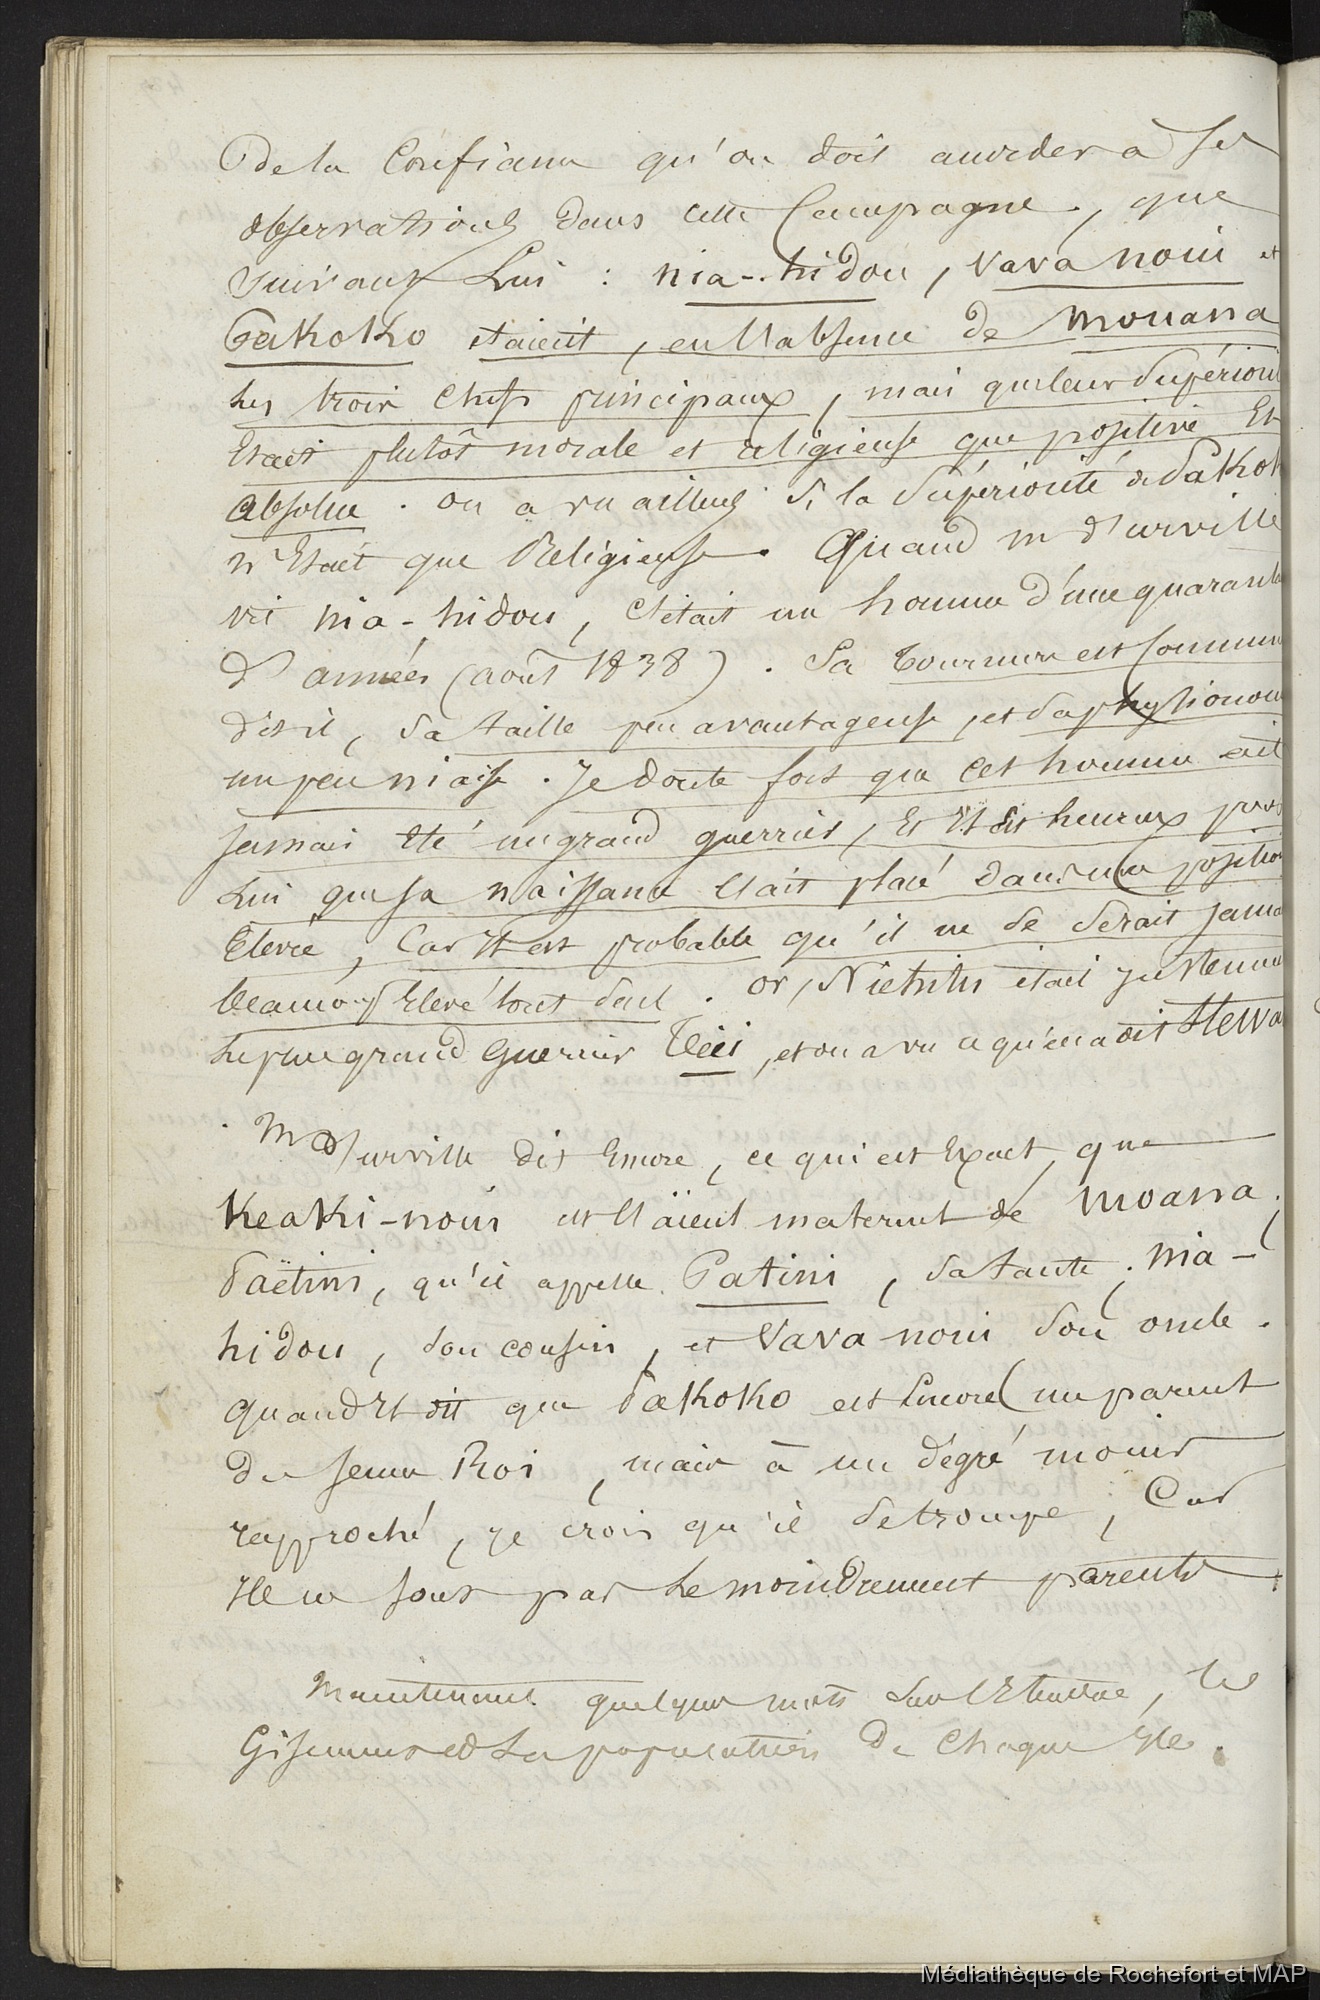 De la Confiance qu'on doit accorder à ses
observations dans cette Campagne, que
suivant Lui : nia-hidou, Vava noui et
Pakoko etaient, en l'absence de Mouana
les trois Chefs principaux, mais que leur Supériori
Etait plutôt morale et religieuse que positive Et
absolue. on a vu ailleurs si la Supériorité de Pakok
n'Etait que Religieuse. Quand m d'urville
vit nia-hidou, C'était un homme d'une quarantai
d'années (août 1838). Sa tournure est Commun
dit il, Sa taille peu avantageuse, et Sa physionom
un peu niaise. Je doute fort que cet homme ait
jamais Eté un grand guerrier, Et Il Est heureux pour
Lui que sa naissance l'ait placé dans une position
Elevée, Car Il est probable qu'il ne se serait jama
beaucoup Elevé tout seul. or, Niehitu était justemen
le plus grand guerrier Teii, et on a vu ce qu'en a dit Hewa
M d'urville dit Encore, ce qui est Exact, que
Keaki-noui est l'aïeul maternel de Moana;
Paëtini, qu'il appelle Patini, Sa tante; nia-
hidou, son cousin, et Vava noui Son oncle.
quand Il dit que Pakoko est Encore un parent
du jeune Roi, mais à un dégré moins
rapproché, je crois qu'il Se trompe, Car
Ils ne sont pas le moindrement parents.
Maintenant quelques mots sur l'Etendue, les
Gisements et la population de chaque Ile.
Médiathèque de Rochefort et MAP